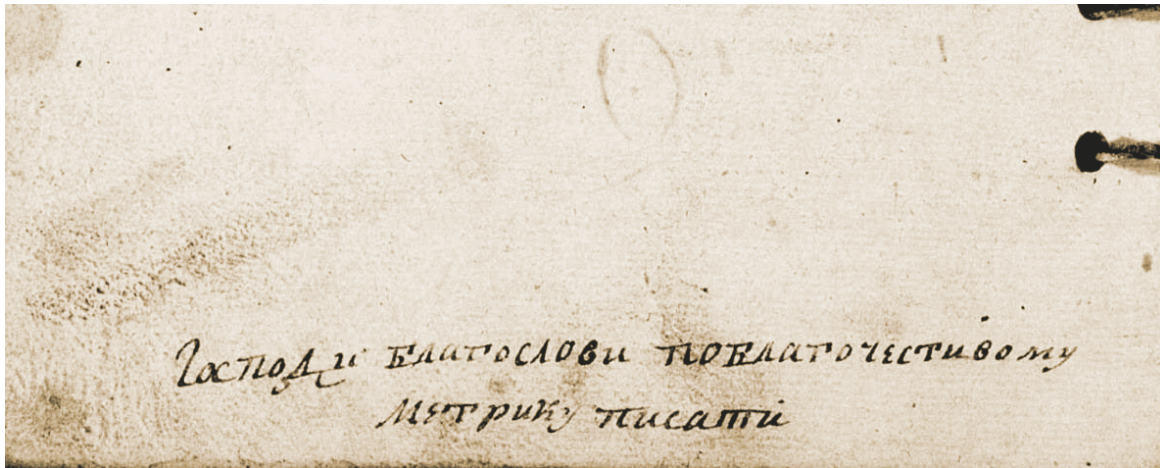 Господи благослови поблагочестивому
метрику писати